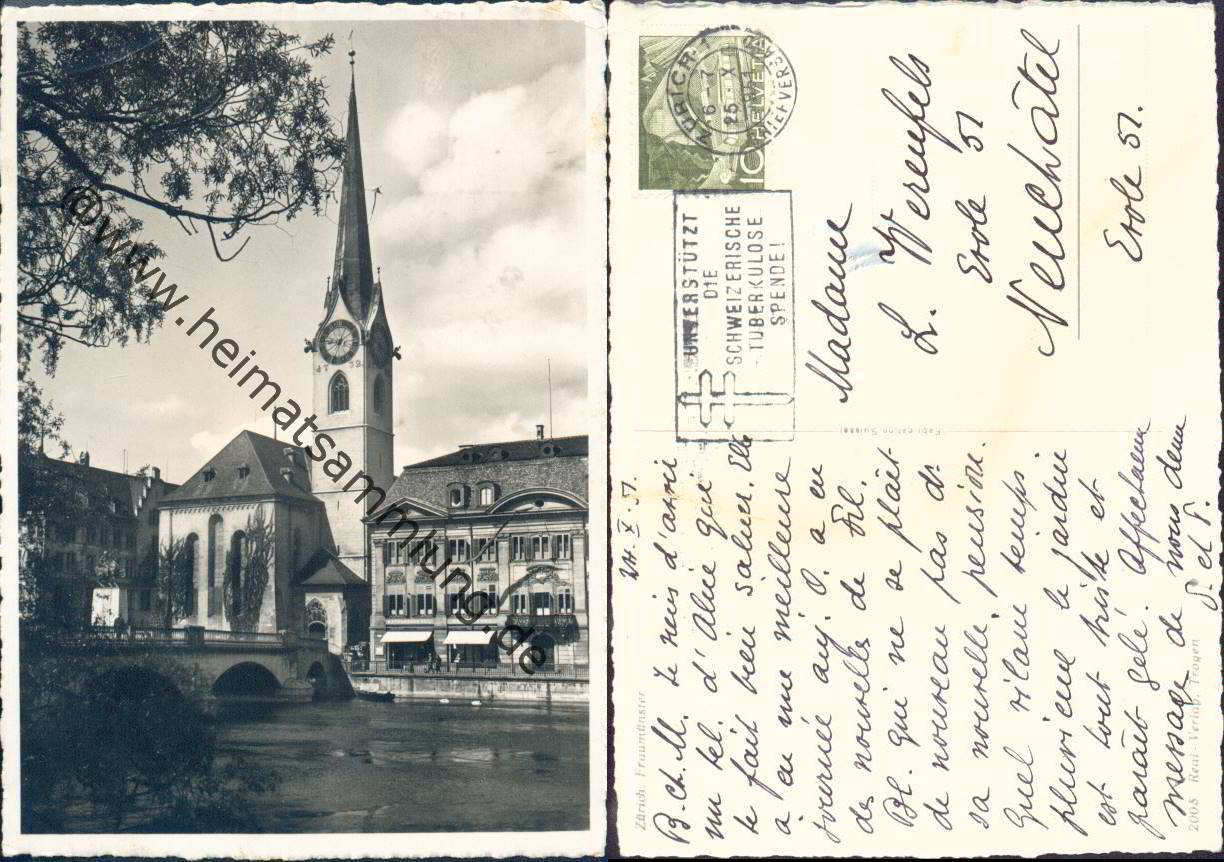 © www.heimatsammlung.de
ZÜRICH 1
25.X
1951
BRIEFVERSAND
HELVETIA
10
UNTERSTÜTZT
DIE
SCHWEIZERISCHE
TUBERKULOSE
SPENDE!
Madame
L. Werenfels
Evole 51
Neuchâtel
Evole 51.
Fabrication Suisse
24. X. 51.
B. Ch. M. Je viens d'avoir
un tel. d'Alice que
te fait bien saluer. Elle
a eu une meilleure
journée auj. O. a eu
des nouvelles de Fil.
Bl. qui ne se plaît
de nouveau pas ds
sa nouvelle pension.
Quel vilain temps
pluvieux le jardin
est tout triste et
paraît gelé. Affectueux
message de nous deux
S. et F.
Zürich. Fraumünster
2008 Real-Verlag, Trogen